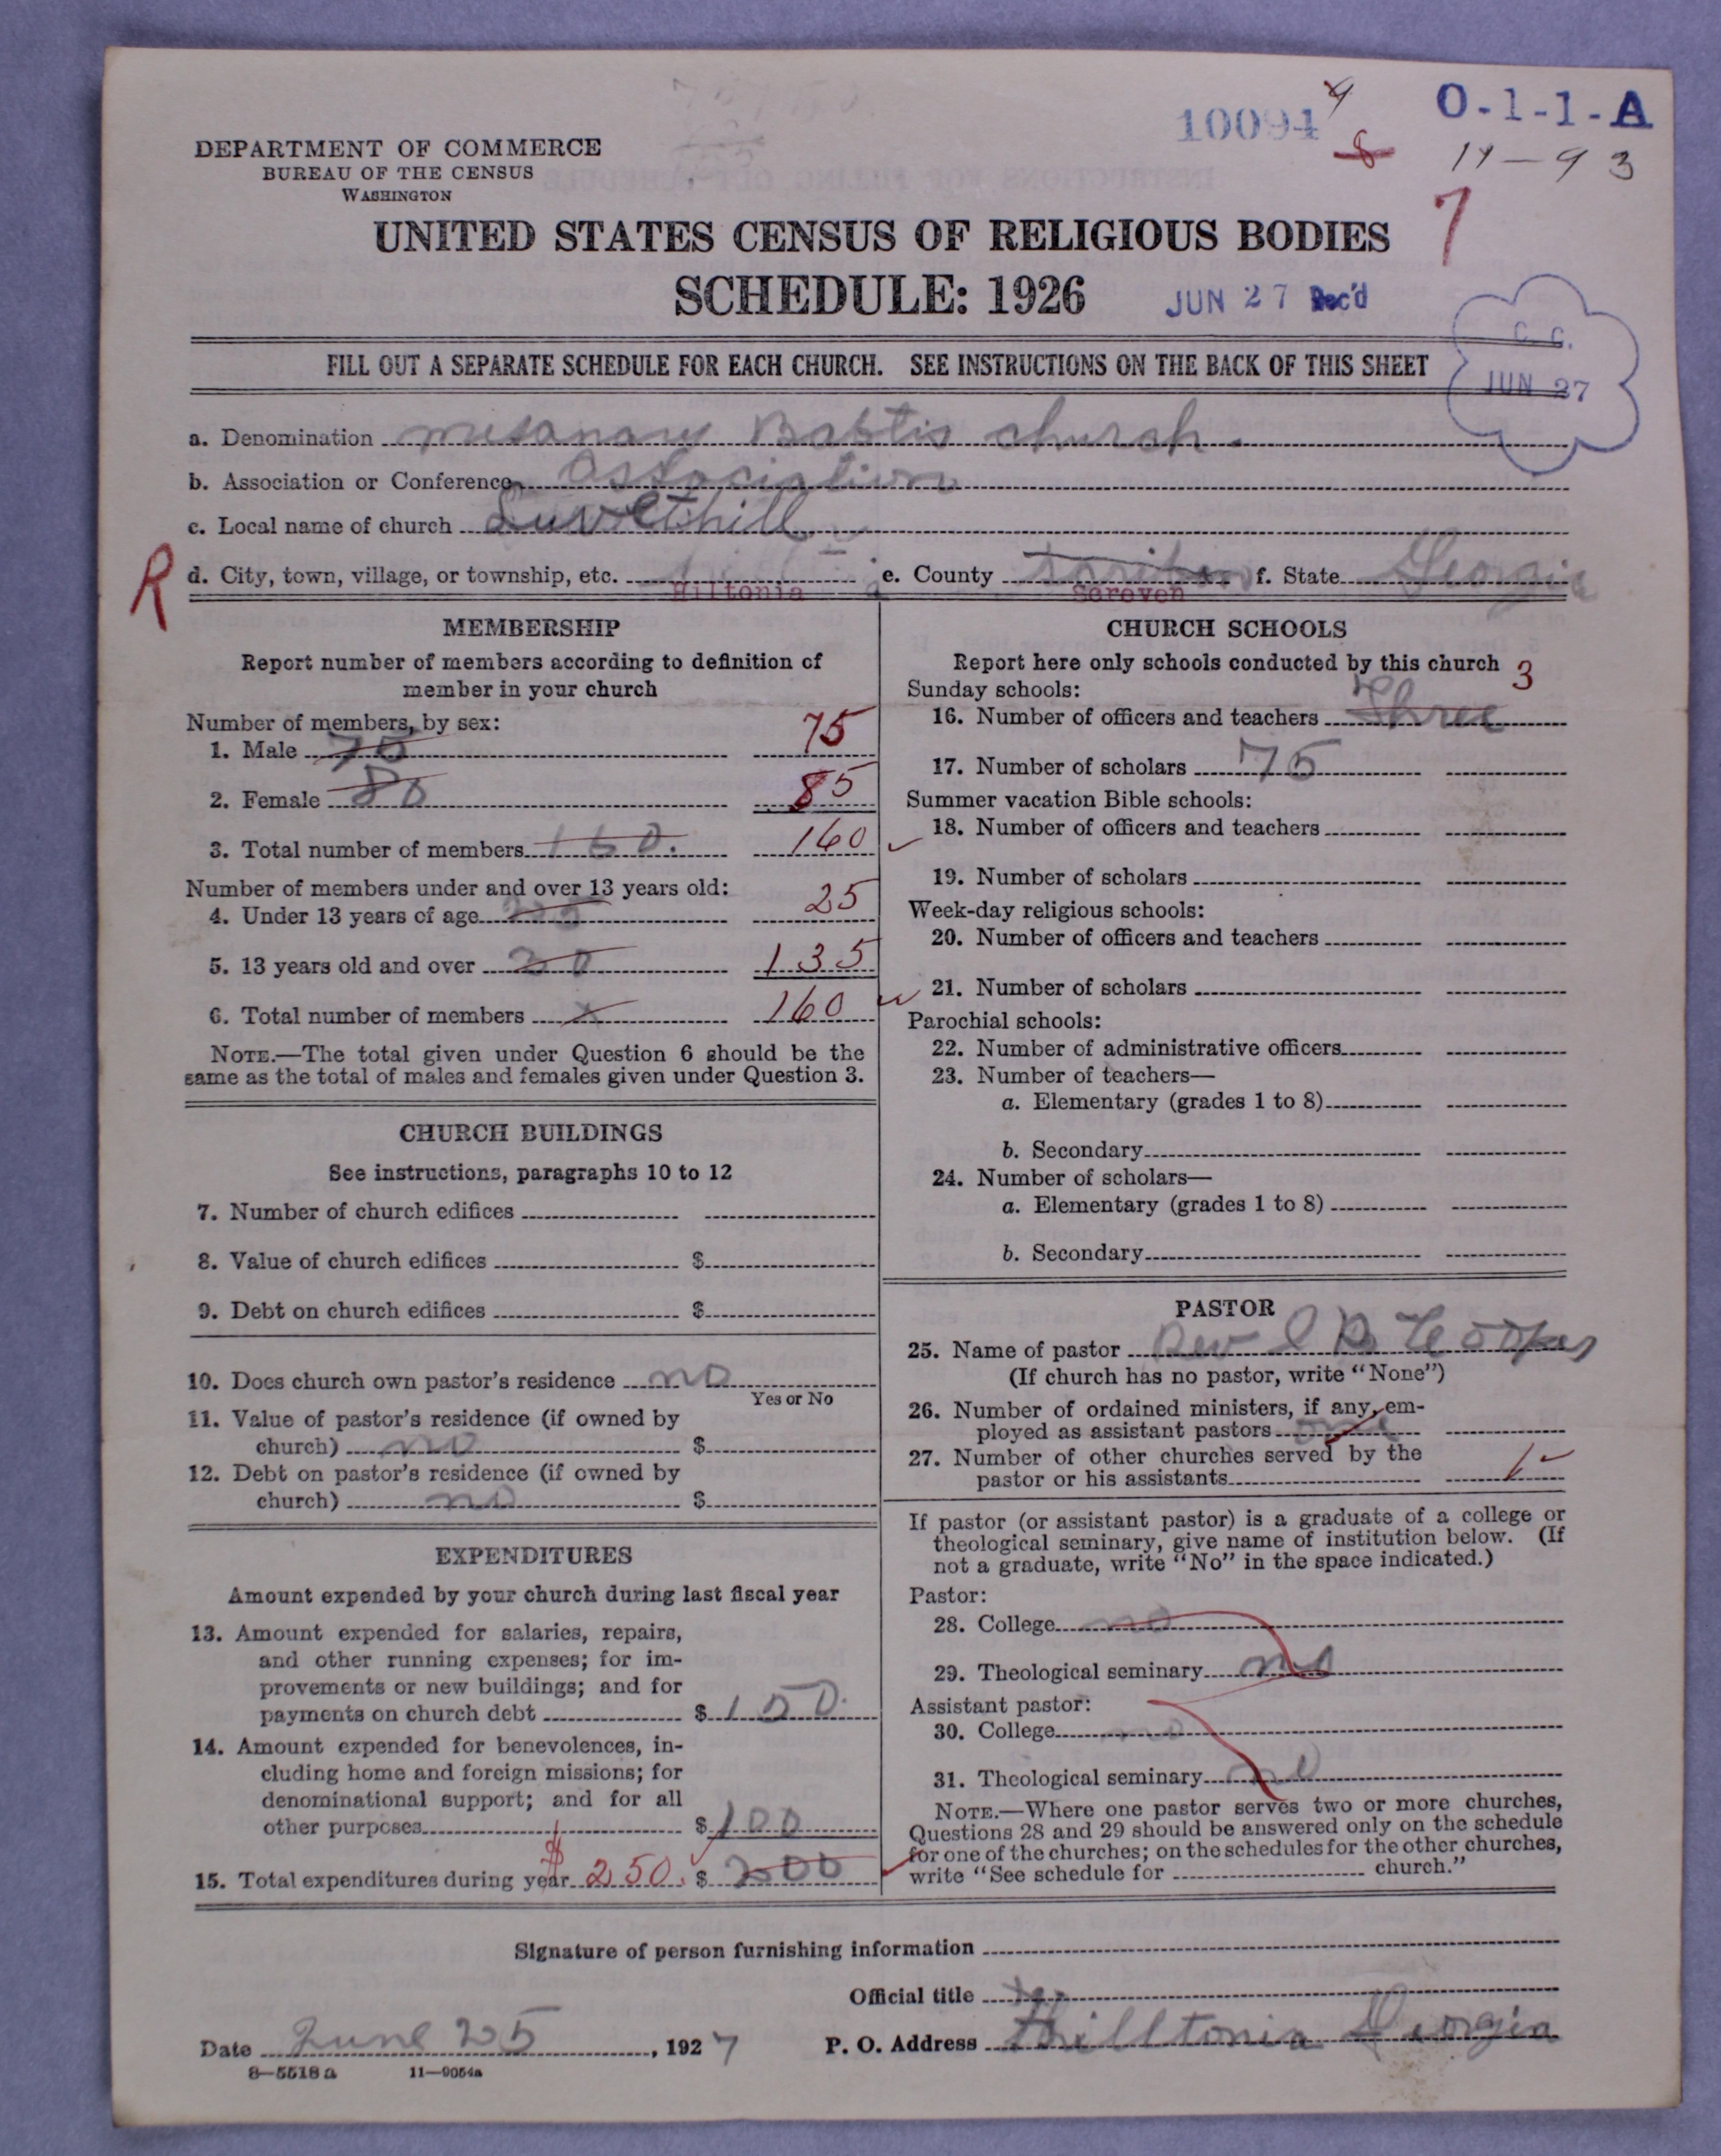 10094 4 O-1-1-A
8 11-93
DEPARTMENT OF COMMERCE
BUREAU OF THE CENSUS
WASHINGTON
7
UNITED STATES CENSUS OF RELIGIOUS BODIES
SCHEDULE: 1926
JUN 27 Rec'd
C. C.
JUN 27
FILL OUT A SEPARATE SCHEDULE FOR EACH CHURCH. SEE INSTRUCTIONS ON THE BACK OF THIS SHEET
a. Denomination mesanary Babtis church.
b. Association or Conference association
c. Local name of church
R d. City, town, village, or township, etc. Hiltonia e. County Screven f. State Georgia
MEMBERSHIP
Report number of members according to definition of
member in your church
Number of members, by sex:
1. Male 75 75
2. Female 85
3. Total number of members 160. 160
Number of members under and over 13 years old:
4. Under 13 years of age 25 25
5. 13 years old and over 20 135
6. Total number of members x 160
NOTE.—The total given under Question 6 should be the
same as the total of males and females given under Question 3.
CHURCH BUILDINGS
See instructions, paragraphs 10 to 12
7. Number of church edifices
8. Value of church edifices $
9. Debt on church edifices $
10. Does church own pastor's residence no
Yes or No
11. Value of pastor's residence (if owned by
church) no $
12. Debt on pastor's residence (if owned by
church) no $
EXPENDITURES
Amount expended by your church during last fiscal year
13. Amount expended for salaries, repairs,
and other running expenses; for im-
provements or new buildings; and for
payments on church debt $150.
14. Amount expended for benevolences, in-
cluding home and foreign missions; for
denominational support; and for all
other purposes $100
15. Total expenditures during year $250. $200
CHURCH SCHOOLS
Report here only schools conducted by this church
Sunday schools: 3
16. Number of officers and teachers Three
17. Number of scholars 75
Summer vacation Bible schools:
18. Number of officers and teachers
19. Number of scholars
Week-day religious schools:
20. Number of officers and teachers
21. Number of scholars
Parochial schools:
22. Number of administrative officers
23. Number of teachers—
a. Elementary (grades 1 to 8)
b. Secondary
24. Number of scholars—
a. Elementary (grades 1 to 8)
b. Secondary
PASTOR
25. Name of pastor Rev
(If church has no pastor, write "None")
26. Number of ordained ministers, if any, em-
ployed as assistant pastors one
27. Number of other churches served by the
pastor or his assistants 1
If pastor (or assistant pastor) is a graduate of a college or
theological seminary, give name of institution below. (If
not a graduate, write "No" in the space indicated.)
Pastor:
28. College no
29. Theological seminary no
Assistant pastor:
30. College no
31. Theological seminary no
NOTE.—Where one pastor serves two or more churches,
Questions 28 and 29 should be answered only on the schedule
for one of the churches; on the schedules for the other churches,
write "See schedule for church."
Signature of person furnishing information
Official title
Date June 25, 1927 P. O. Address Hilltonia Georgia
8—5518a 11—9054a